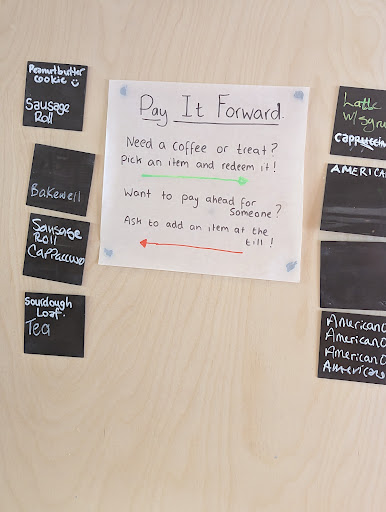 Peanutbutter
cookie
Sausage
Roll
Bakewell
Sausage
Roll
Cappuccino
Sourdough
Loaf.
Tea
Pay It Forward.
Need a coffee or treat?
Pick an item and redeem it!
Want to pay ahead for
someone?
Ask to add an item at the
till!
Latte
w/ Syru
Cappuccin
AMERICA
Americano
Americano
Americano
Americano